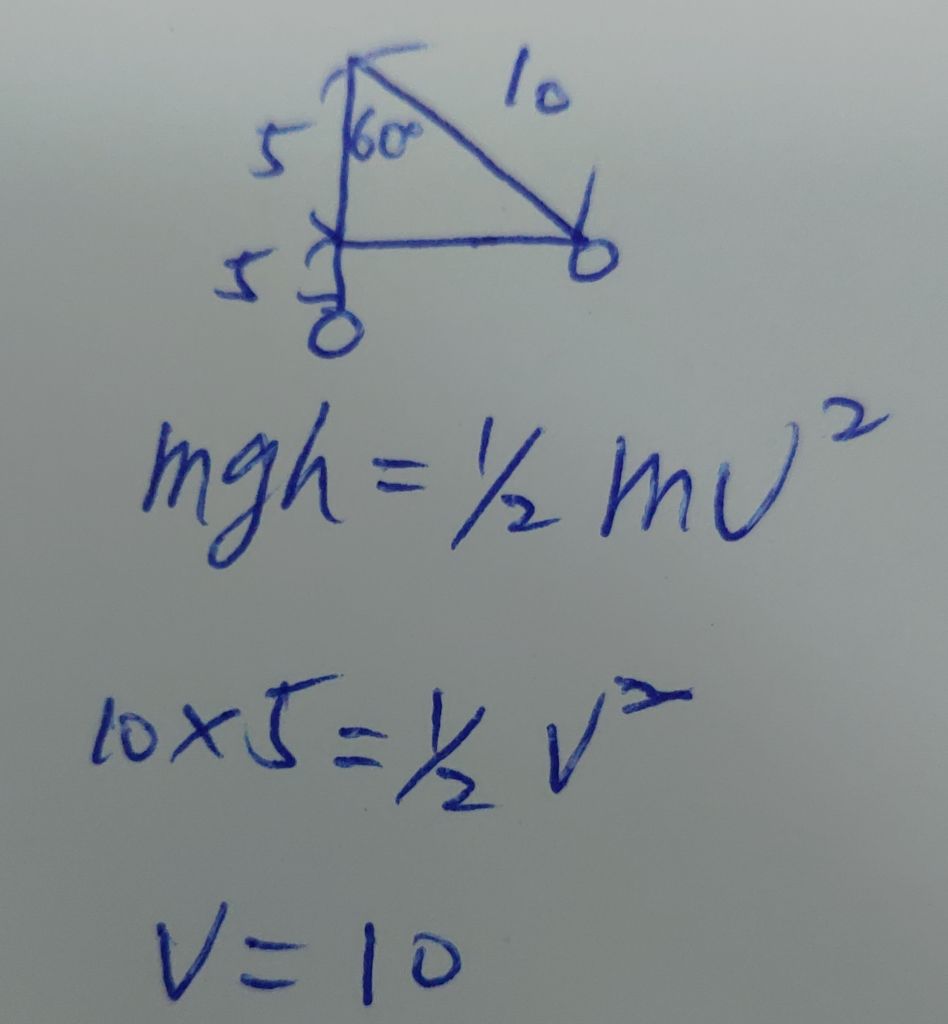 10
5 60°
5
mgh = 1/2 mv²
10×5 = 1/2 v²
v = 10